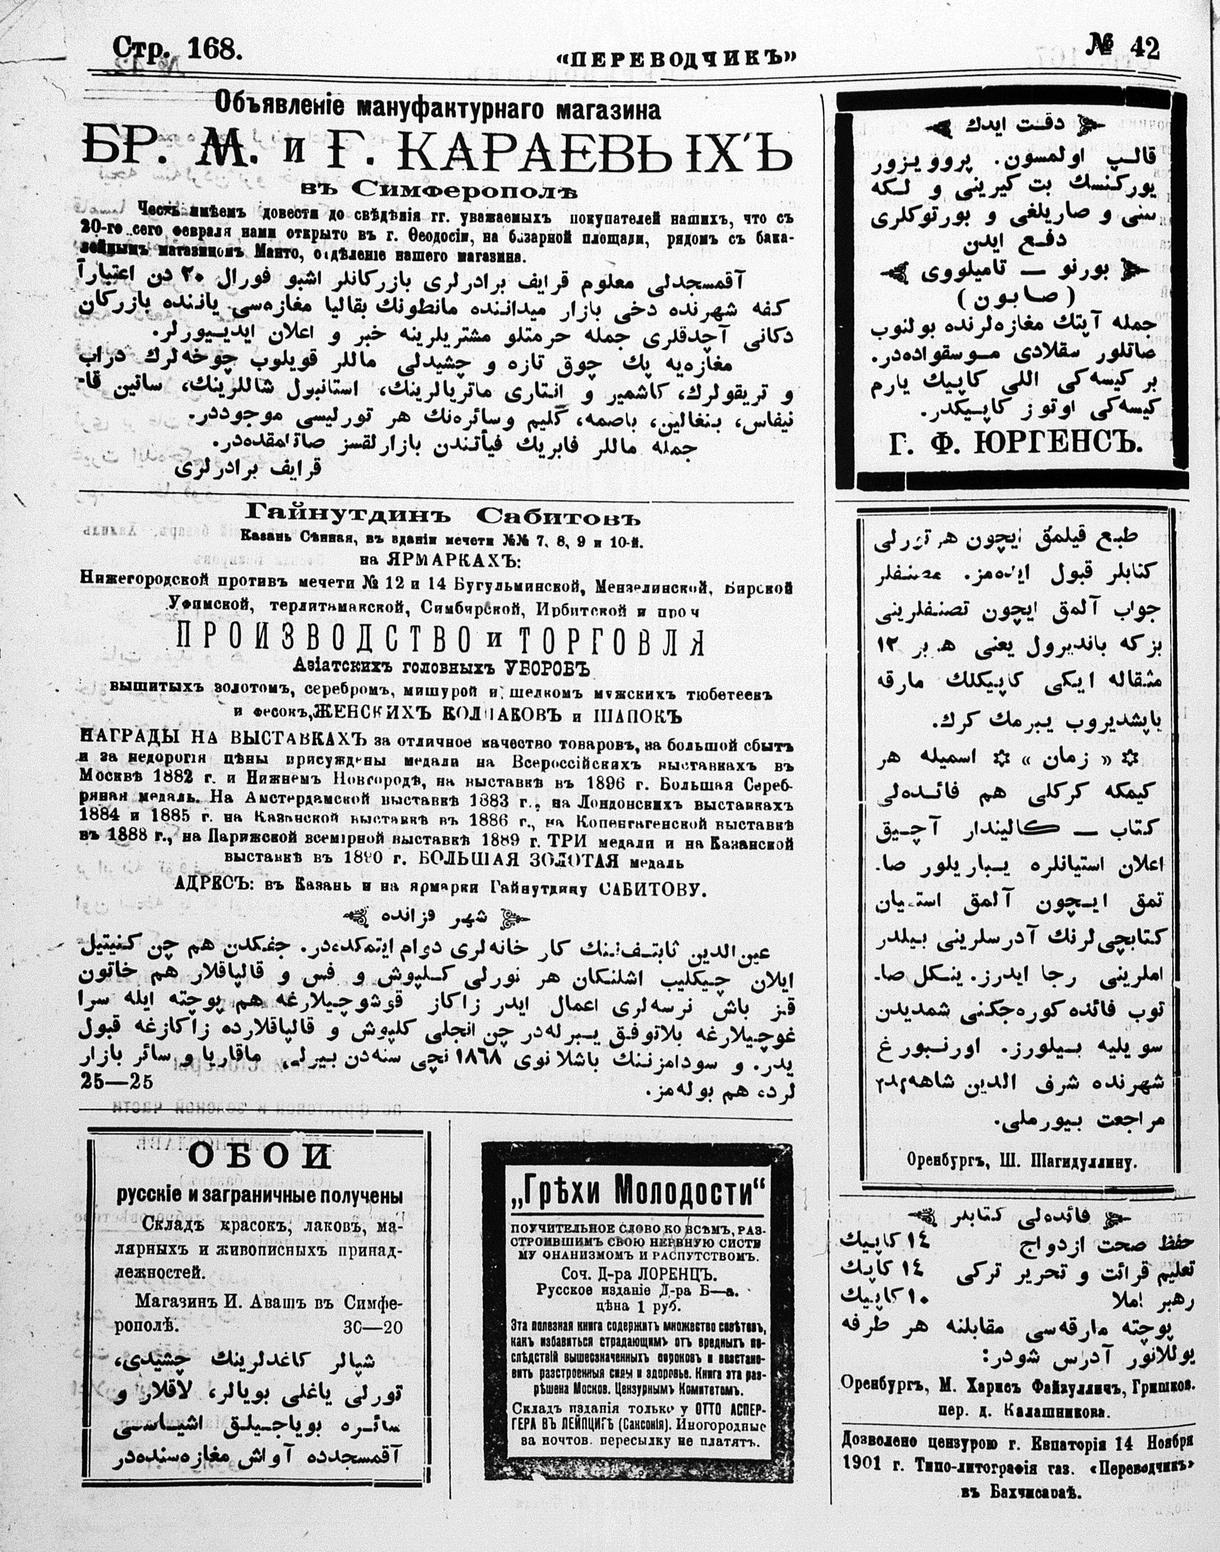 Стр. 168.
«ПЕРЕВОДЧИКЪ»
№ 42
Объявленіе мануфактурнаго магазина
БР. М. и Г. КАРАЕВЫХЪ
въ Симферополѣ
Честь имѣемъ довести до свѣдѣнія гг. уважаемыхъ покупателей нашихъ, что съ
20-го сего февраля нами открыто въ г. Ѳеодосіи, на базарной площади, рядомъ съ бака-
лейнымъ магазиномъ Манто, отдѣленіе нашего магазина.
آقمسجدلی معلوم قرایف برادرلری بازرکانلر اشبو فورال ٢٠ دن اعتباراً
کفه شهرنده دخی بازار میداننده مانطونك بقالیا مغازه‌سی یاننده بازرکان
دکانی آچدقلری جمله حرمتلو مشتریلرینه خبر و اعلان ایدییورلر.
مغازه‌یه پك چوق تازه و چشیدلی ماللر قویلوب چوخه‌لرك دراپ
و تریقولرك، کاشمیر و انتاری ماتریالرینك، استانبول شاللرینك، ساتین قا-
نیفاس، بنغالین، باصمه، گلیم وسائره‌نك هر تورلیسی موجوددر.
جمله ماللر فابریك فیأتندن بازارلقسز صاتلمقده‌در.
قرایف برادرلری
Гайнутдинъ Сабитовъ
Казань Сѣнная, въ зданіи мечети №№ 7, 8, 9 и 10-й.
на ЯРМАРКАХЪ:
Нижегородской противъ мечети № 12 и 14 Бугульминской, Мензелинской, Бирской
Уфимской, терлитамакской, Симбирской, Ирбитской и проч
ПРОИЗВОДСТВО и ТОРГОВЛЯ
Азіатскихъ головныхъ УБОРОВЪ
вышитыхъ золотомъ, серебромъ, мишурой и шелкомъ мужскихъ тюбетеевъ
и фесокъ, ЖЕНСКИХЪ КОЛПАКОВЪ и ШАПОКЪ
НАГРАДЫ НА ВЫСТАВКАХЪ за отличное качество товаровъ, за большой сбытъ
и за недорогія цѣны присуждены медали на Всероссійскихъ выставкахъ въ
Москвѣ 1882 г. и Нижнемъ Новгородѣ, на выставкѣ въ 1896 г. Большая Сереб-
ряная медаль. На Амстердамской выставкѣ 1883 г., на Лондонскихъ выставкахъ
1884 и 1885 г. на Казанской выставкѣ въ 1886 г., на Копенгагенской выставкѣ
въ 1888 г., на Парижской всемірной выставкѣ 1889 г. ТРИ медали и на Казанской
выставкѣ въ 1890 г. БОЛЬШАЯ ЗОЛОТАЯ медаль
АДРЕСЪ: въ Казань и на ярмарки Гайнутдину САБИТОВУ.
شهر قزانده
عین‌الدین ثابتف‌ننك کار خانه‌لری دوام ایتمکده‌در. جفکدن هم چن کنیتیل
ایلان چیکلیب اشلنکان هر تورلی کلپوش و فس و قالپاقلار هم خاتون
قز باش نرسه‌لری اعمال ایدر زاکاز قوشوچیلارغه هم پوچته ایله سرا
غوچیلارغه بلاتوفق یبرله‌در چن انجلی کلپوش و قالپاقلارده زاکازغه قبول
یدر. و سودامزننك باشلانوی ١٨٦٨ نچی سنه‌دن بیرلی ماقاریا و سائر بازار
لرده هم بوله‌مز.
25—25
ОБОИ
русскіе и заграничные получены
Складъ красокъ, лаковъ, ма-
лярныхъ и живописныхъ принад-
лежностей.
Магазинъ И. Авашъ въ Симфе-
рополѣ. 30—20
شپالر کاغدلرینك چشیدی،
تورلی یاغلی بویالر، لاقلار و
سائره بویاجیلق اشیاسی
آقمسجدده آواش مغازه‌سنده‌در
„Грѣхи Молодости“
ПОУЧИТЕЛЬНОЕ СЛОВО КО ВСѢМЪ, РАЗ-
СТРОИВШИМЪ СВОЮ НЕРВНУЮ СИСТЕ
МУ ОНАНИЗМОМЪ И РАСПУТСТВОМЪ.
Соч. Д-ра ЛОРЕНЦЪ.
Русское изданіе Д-ра Б—а.
цѣна 1 руб.
Эта полезная книга содержитъ множество совѣтовъ,
какъ избавиться страдающимъ отъ вредныхъ по-
слѣдствій вышеозначенныхъ пороковъ и возстано-
вить разстроенныя силы и здоровье. Книга эта раз-
рѣшена Москов. Цензурнымъ Комитетомъ.
Складъ изданія только у ОТТО АСПЕР-
ГЕРА ВЪ ЛЕЙПЦИГѢ (Саксонія). Иногородные
за почтов. пересылку не платятъ.
دقت ایدك
قالپ اولمسون. پروویزور
یورکنسك بت کیرینی و لکه
سنی و صاریلغی و بورتوکلری
دفع ایدن
بورنو — تامیلووی
(صابون)
جمله آپتك مغازه‌لرنده بولنوب
صاتلور سقلادی موسقواده‌در.
بر کیسه‌کی اللی کاپیك یارم
کیسه‌کی اوتوز کاپیکدر.
Г. Ф. ЮРГЕНСЪ.
طبع قیلمق ایچون هر تورلی
کتابلر قبول ایده‌مز. مصنفلر
جواب آلمق ایچون تصنفلرینی
بزکه باندیرول یعنی هر بر ١٢
مثقاله ایکی کاپیکلك مارقه
یاپشدیروب یبرمك کرك.
« زمان » اسمیله هر
کیمکه کرکلی هم فائده‌لی
کتاب — کالیندار آچیق
اعلان استیانلره یباریلور صا-
تمق ایچون آلمق استیان
کتابچی‌لرنك آدرسلرینی بیلدر
املرینی رجا ایدرز. ینکل صا-
توب فائده کوره‌جکنی شمدیدن
سویلیه بیلورز. اورنبورغ
شهرنده شرف الدین
مراجعت بیورملی.
Оренбургъ, Ш. Шагидуллину.
فائده‌لی کتابلر
حفظ صحت ازدواج ١٤ کاپیك
تعلیم قرائت و تحریر ترکی ١٤ کاپك
رهبر املا ١٠ کاپیك
پوچته مارقه‌سی مقابلنه هر طرفه
یوللانور آدرس شودر:
Оренбургъ, М. Харисъ Файзуллинъ, Гришков.
пер. д. Калашникова.
Дозволено цензурою г. Евпаторія 14 Ноября
1901 г. Типо-литографія газ. «Переводчикъ»
въ Бахчисараѣ.